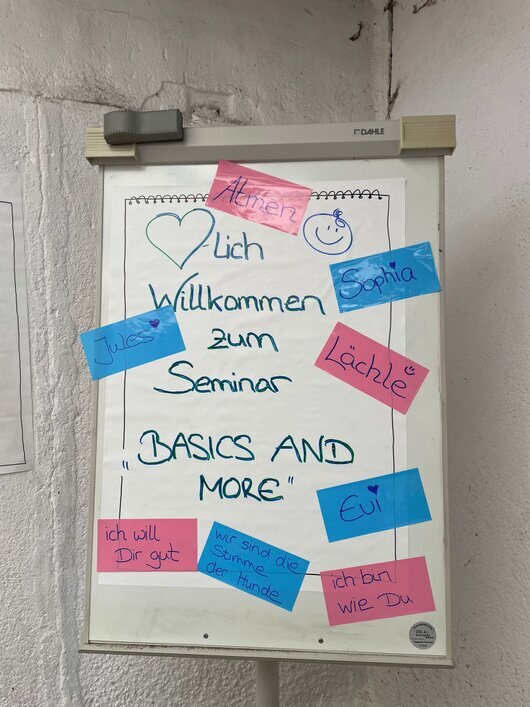 DAHLE
Atmen
lich
Willkommen
zum
Seminar
Sophia
Jules
Lächle
„BASICS AND
MORE"
Evi
ich will
Dir gut
wir sind die
Stimme
der Hunde
ich bin
wie Du